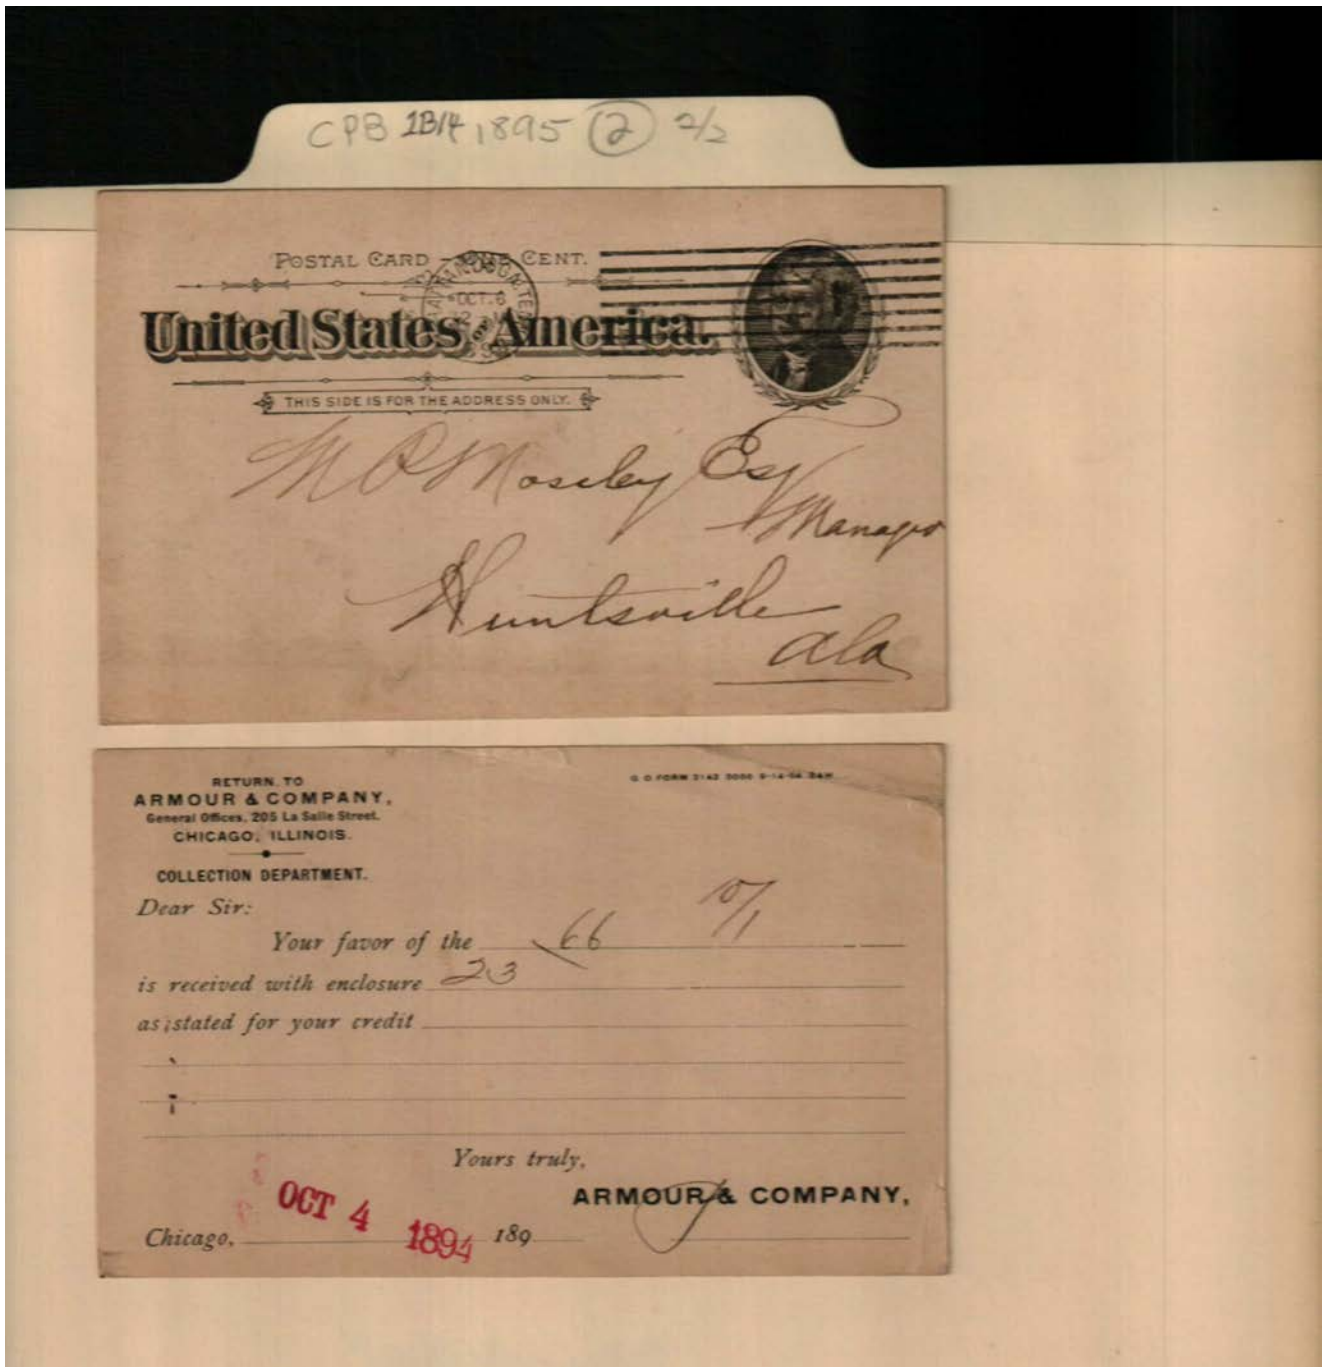 CPB 1B14 1895 (2) 2/2
POSTAL CARD - ONE CENT.
OCT. 6
United States of America.
THIS SIDE IS FOR THE ADDRESS ONLY.
Moseley Esq
Manager
Huntsville
Ala
RETURN TO
ARMOUR & COMPANY,
General Offices, 205 La Salle Street.
CHICAGO, ILLINOIS.
COLLECTION DEPARTMENT.
G O FORM 2142
Dear Sir:
10/1
Your favor of the 66
is received with enclosure 23
as stated for your credit
Yours truly,
ARMOUR & COMPANY,
OCT 4 1894
Chicago, 189